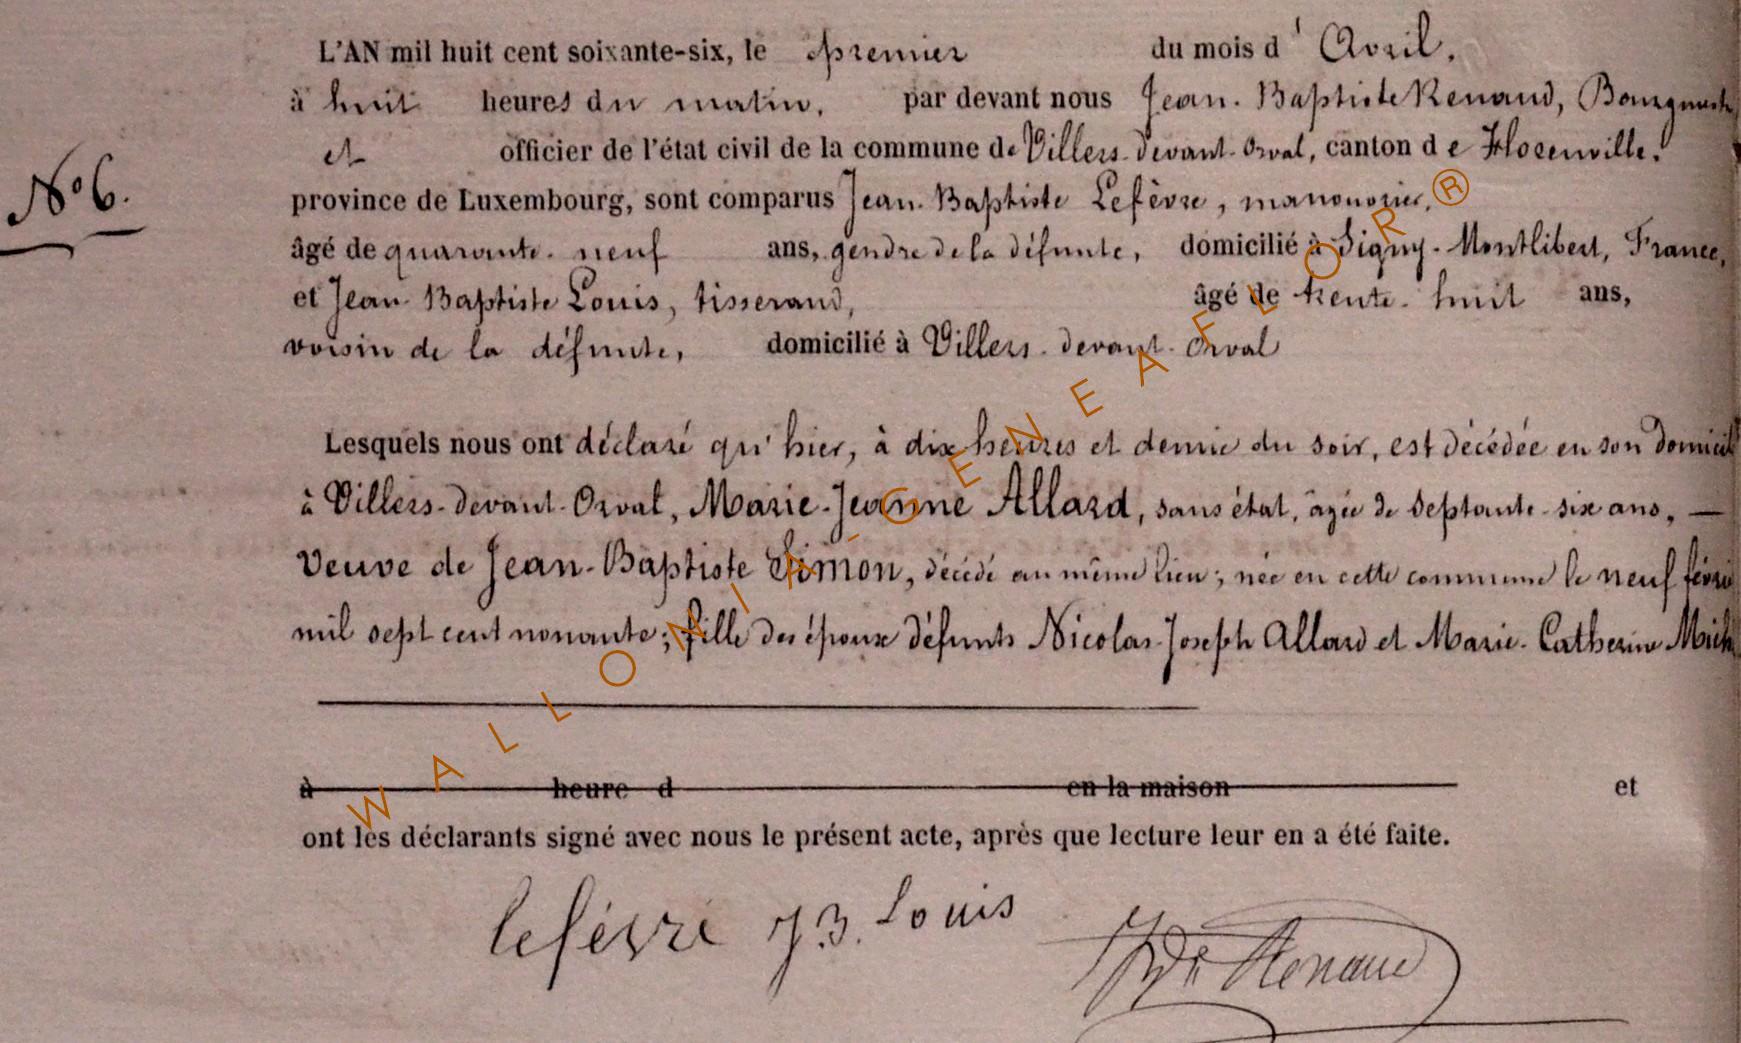 L'AN mil huit cent soixante-six, le premier du mois d'Avril,
à huit heures du matin, par devant nous Jean-Baptiste Renaud, Bourgmestre
et officier de l'état civil de la commune de Villers-devant-Orval, canton de Florenville,
N° 6.
province de Luxembourg, sont comparus Jean-Baptiste Lefèvre, manouvrier,
âgé de quarante-neuf ans, gendre de la défunte, domicilié à Signy-Montlibert, France,
et Jean-Baptiste Louis, tisserand, âgé de trente-huit ans,
voisin de la défunte, domicilié à Villers-devant-Orval
Lesquels nous ont déclaré qu'hier, à dix heures et demie du soir, est décédée en son domicile
à Villers-devant-Orval, Marie-Jeanne Allard, sans état, âgée de septante-six ans, —
veuve de Jean-Baptiste Simon, décédé au même lieu; née en cette commune le neuf févri
mil sept cent nonante; fille des époux défunts Nicolas-Joseph Allard et Marie-Catherine Mich
à heure d en la maison et
ont les déclarants signé avec nous le présent acte, après que lecture leur en a été faite.
lefèvre JB. Louis JBte Renaud
WALLONIA-GENEAFLOR®